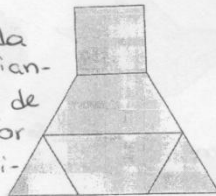 da
ian-
de
or
i-